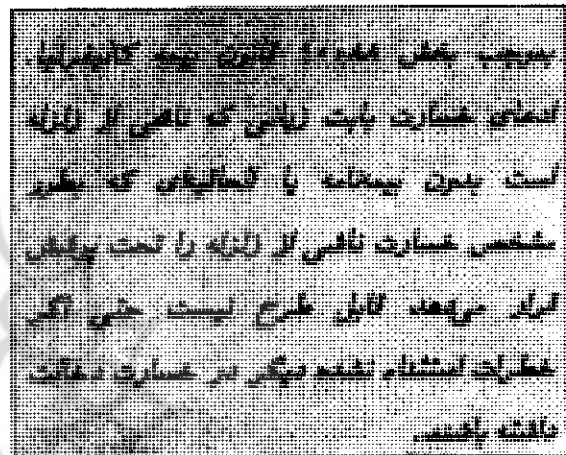 بموجب بخش شماره قانون بیمه کالیفرنیا،
ادعای خسارت بابت زیانی که ناشی از زلزله
است بدون بیمه‌نامه یا الحاقیه‌ای که بطور
مشخص خسارت ناشی از زلزله را تحت پوشش
قرار می‌دهد، قابل طرح نیست حتی اگر
خطرات استثناء نشده دیگر در خسارت دخالت
داشته باشند.